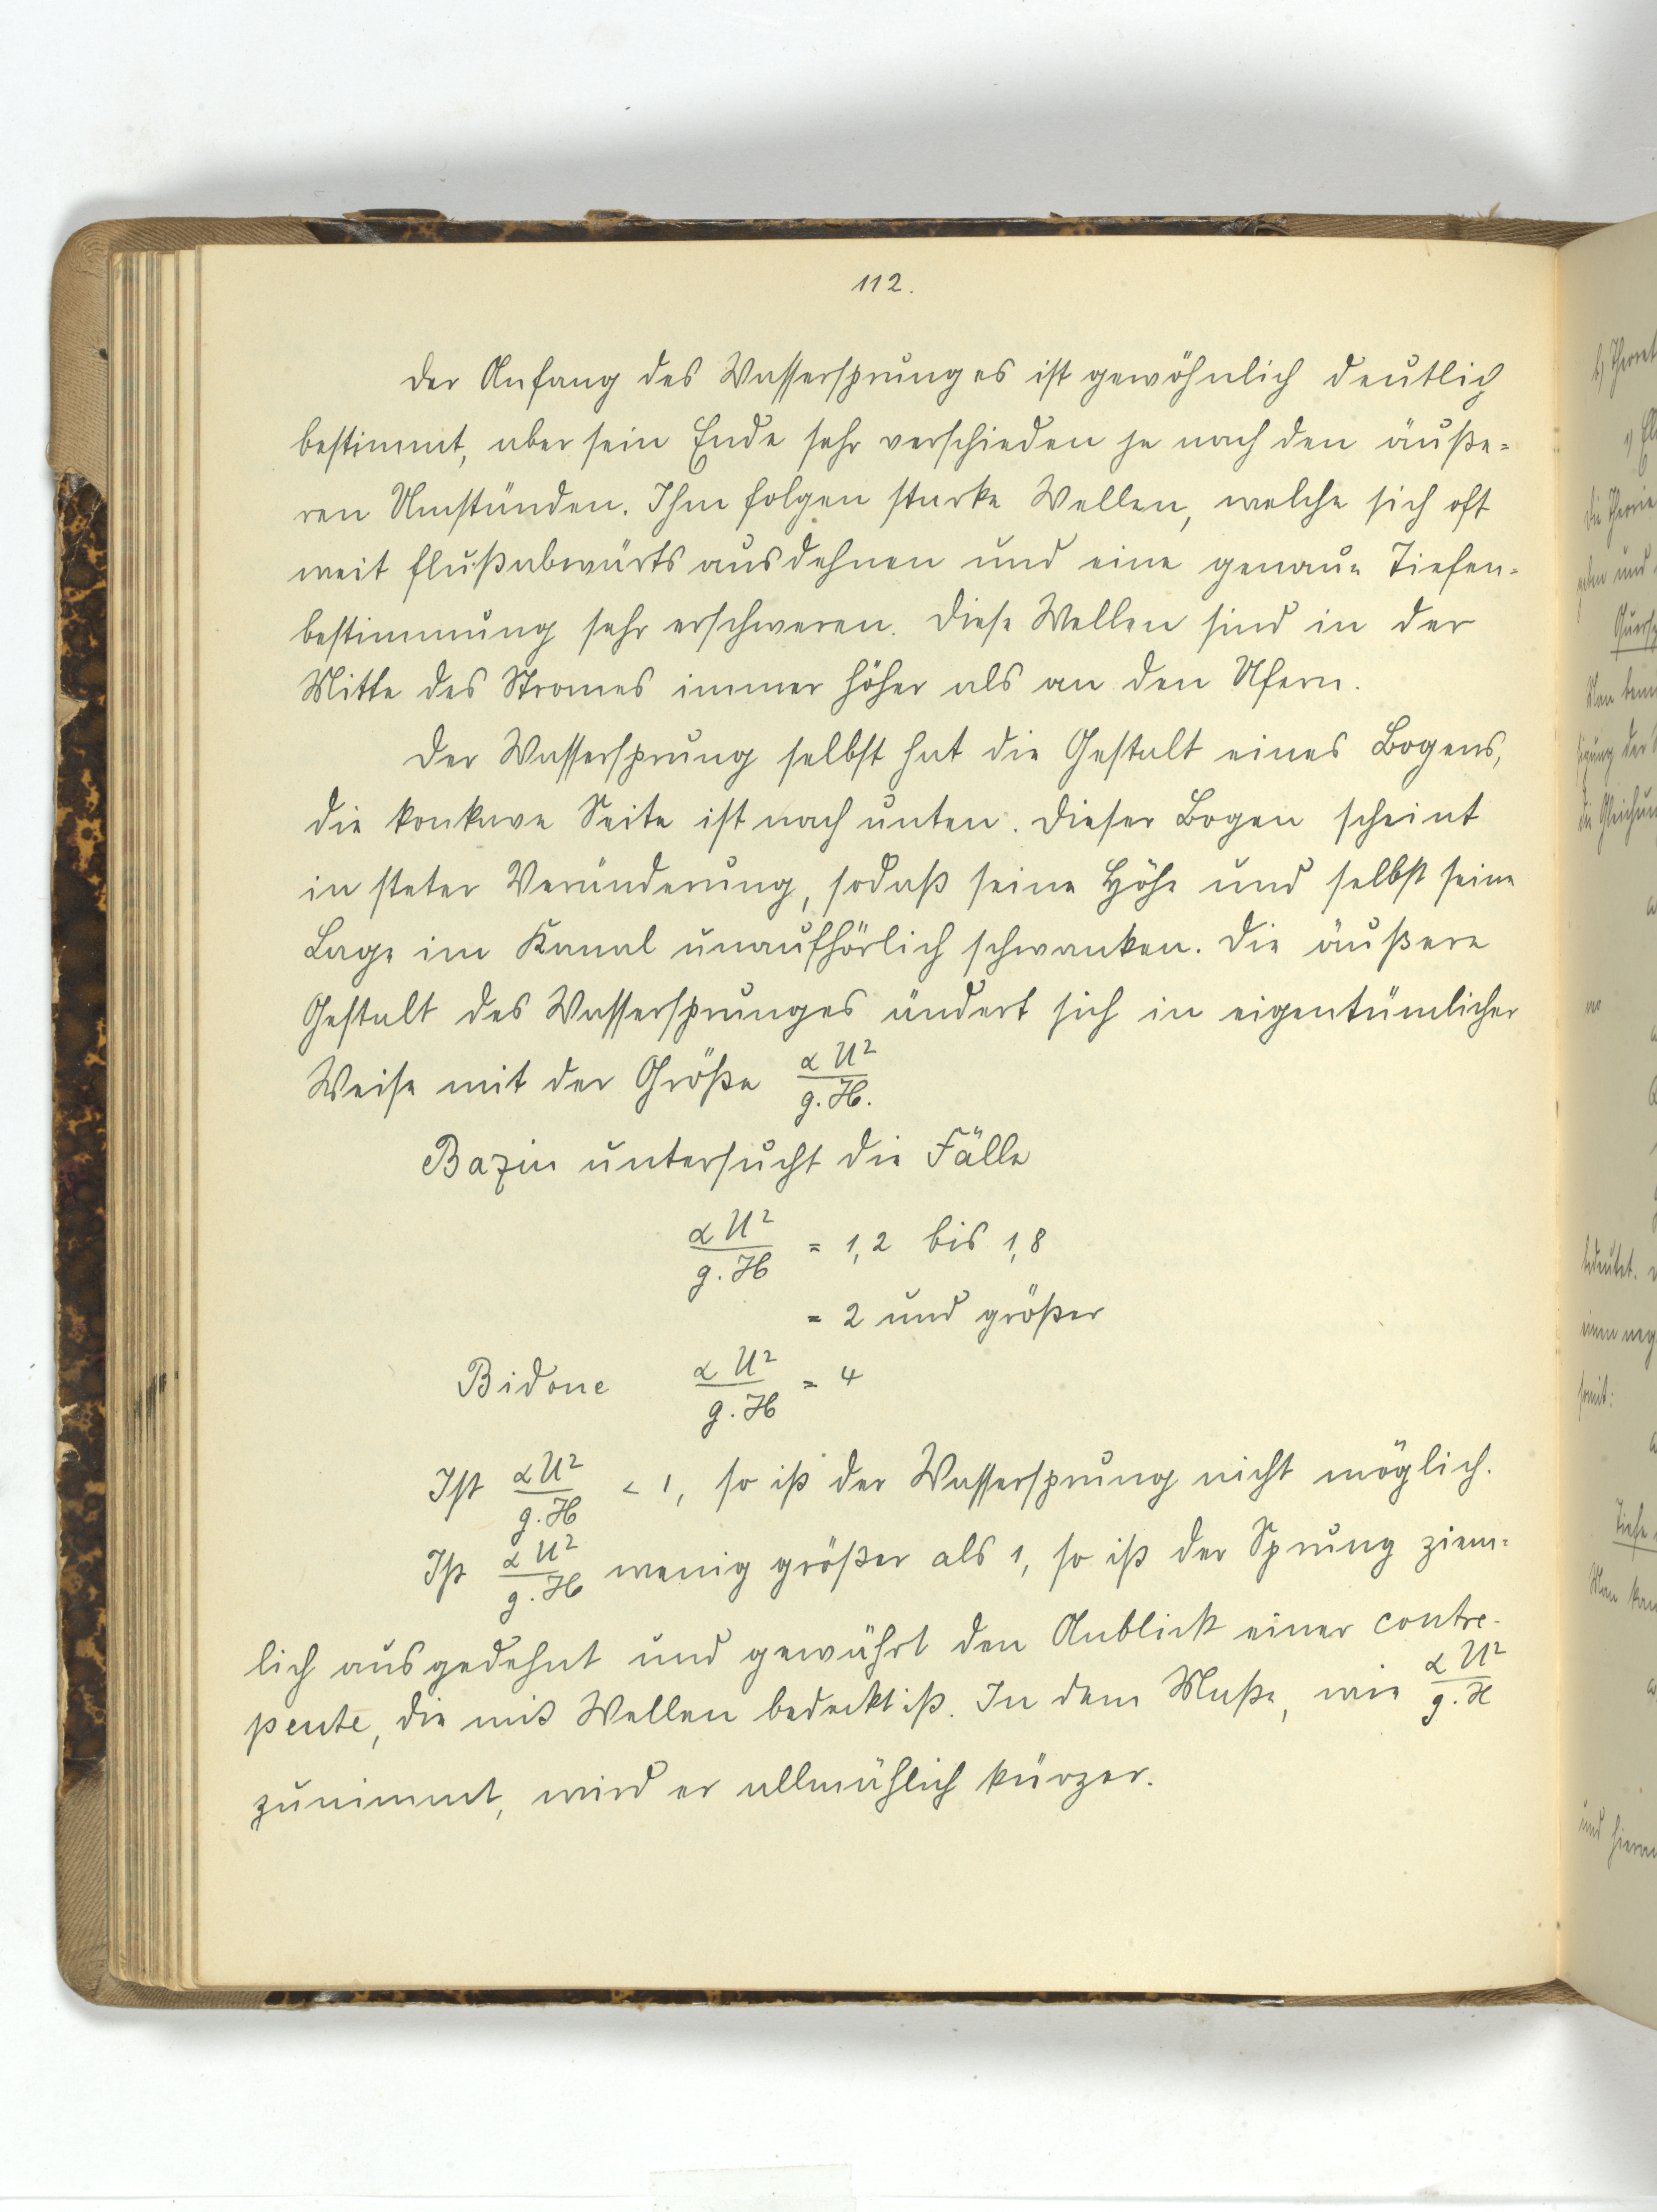 112.
Der Anfang des Wassersprunges ist gewöhnlich deutlich
bestimmt, aber sein Ende sehr verschieden je nach den äuße-
ren Umständen. Ihm folgen starke Wellen, welche sich oft
weit flußabwärts ausdehnen und eine genaue Tiefen-
bestimmung sehr erschweren. Diese Wellen sind in der
Mitte des Stromes immer höher als an den Ufern.
Der Wassersprung selbst hat die Gestalt eines Bogens,
die konkave Seite ist nach unten. Dieser Bogen scheint
in steter Veränderung, sodaß seine Höhe und selbst seine
Lage im Kanal unaufhörlich schwanken. Die äußere
Gestalt des Wassersprunges ändert sich in eigentümlicher
Weise mit der Größe α U² / g. H.
Bazin untersucht die Fälle
α U² / g. H = 1,2 bis 1,8
= 2 und größer
Bidone α U² / g. H = 4
Ist α U² / g. H < 1, so ist der Wassersprung nicht möglich.
Ist α U² / g. H wenig größer als 1, so ist der Sprung ziem-
lich ausgedehnt und gewährt den Anblick einer contre-
pente, die mit Wellen bedeckt ist. In dem Maße, wie α U² / g. H
zunimmt, wird er allmählich kürzer.